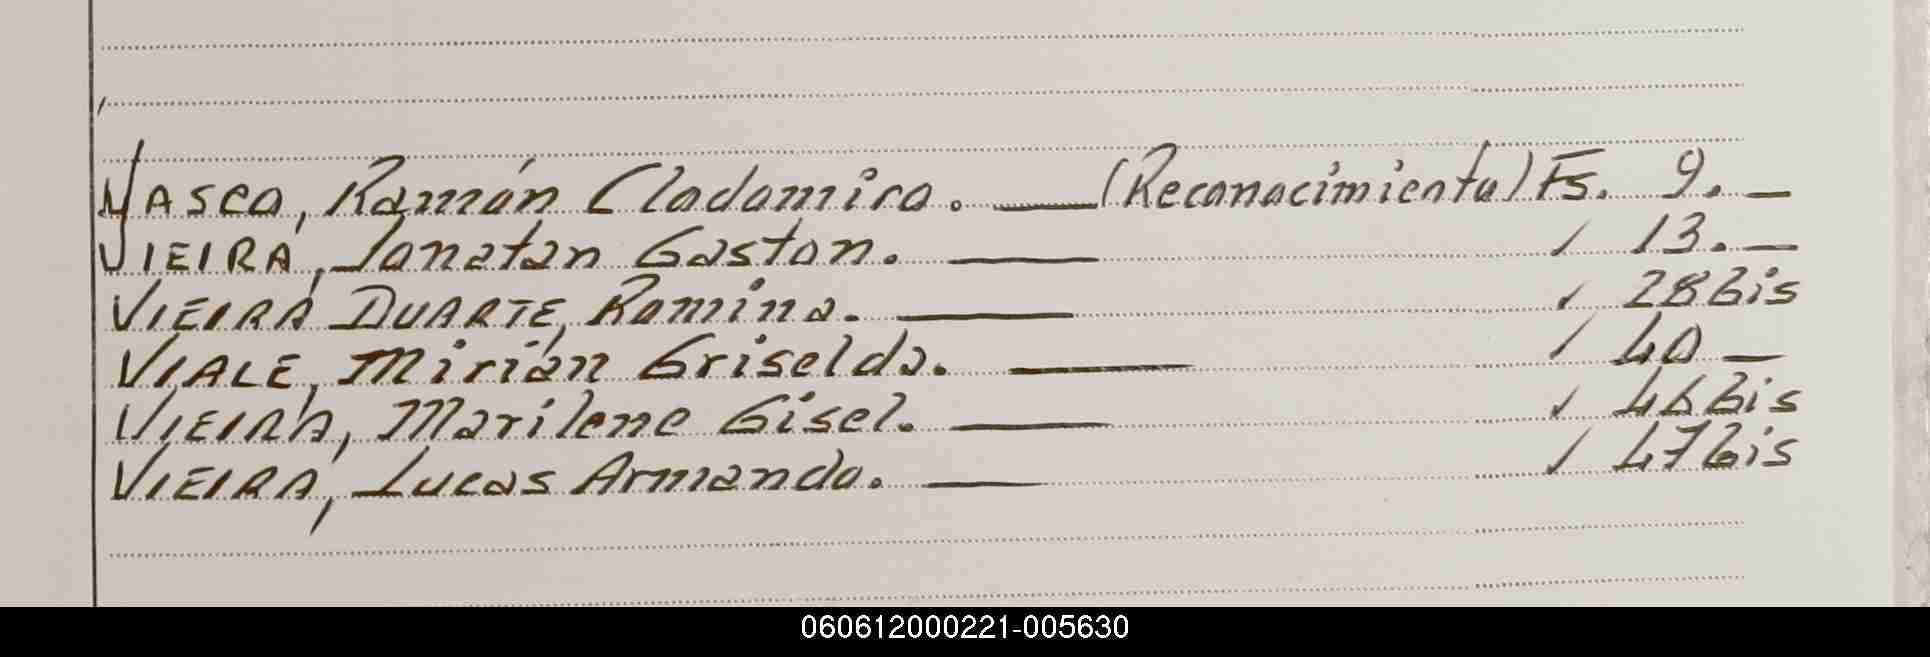 VASCO, Ramón Clodomiro. — (Reconocimiento) Fs. 9. —
VIEIRA, Jonatan Gaston. — / 13. —
VIEIRA DUARTE, Romina. — / 28 bis
VIALE, Mirián Griselda. — / 40 —
VIEIRA, Marilene Gisel. — / 46 bis
VIEIRA, Lucas Armando. — / 47 bis
060612000221-005630